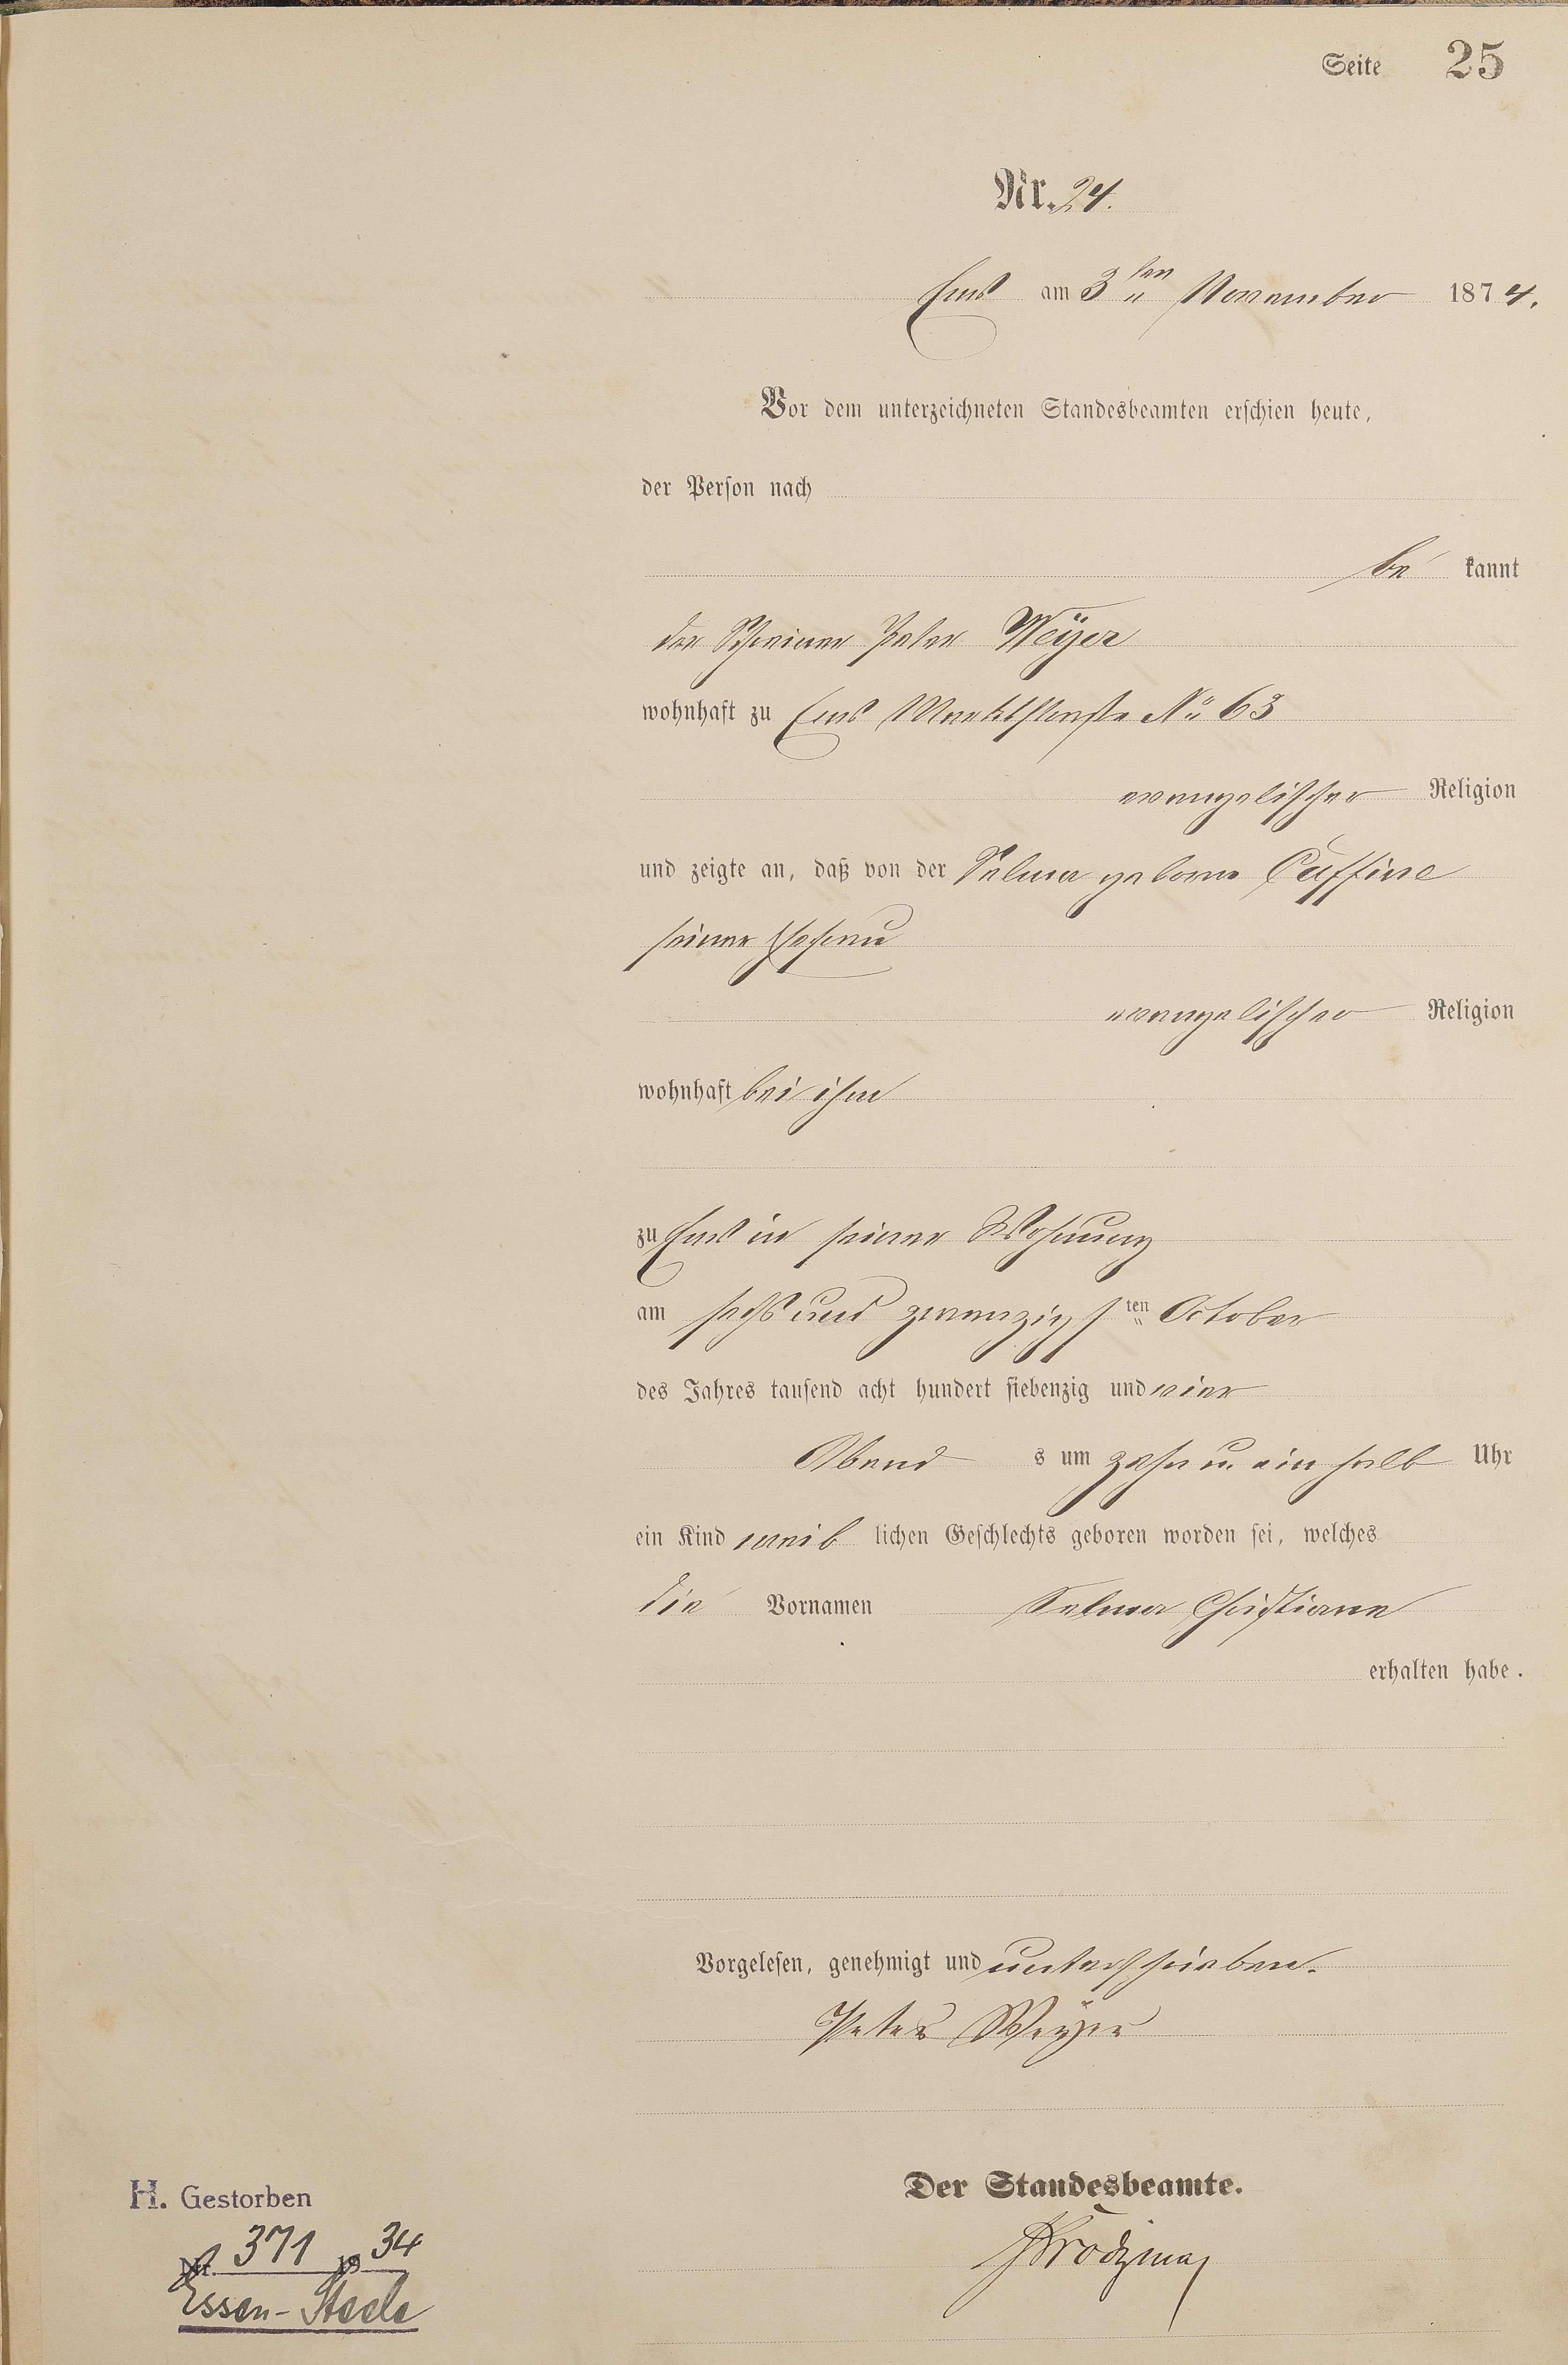 Seite 25
Nr. 24.
Ems am 3ten November 1874.
Vor dem unterzeichneten Standesbeamten erschien heute,
der Person nach
be kannt
der Schreiner Peter Weÿer
wohnhaft zu Ems Marktstraße No 63
evangelischer Religion
und zeigte an, daß von der Selma geborne Cuffine
seiner Ehefrau
evangelischer Religion
wohnhaft bei ihm
zu Ems in seiner Wohnung
am sechs und zwanzigsten October
des Jahres tausend acht hundert siebenzig und vier
Abend s um zehn u. ein halb Uhr
ein Kind weib lichen Geschlechts geboren worden sei, welches
die Vornamen Selma Christiane
erhalten habe.
Vorgelesen, genehmigt und unterschrieben.
Peter Weÿer
Der Standesbeamte.
H. Gestorben
Nr. 371 19 34
Essen-Steele